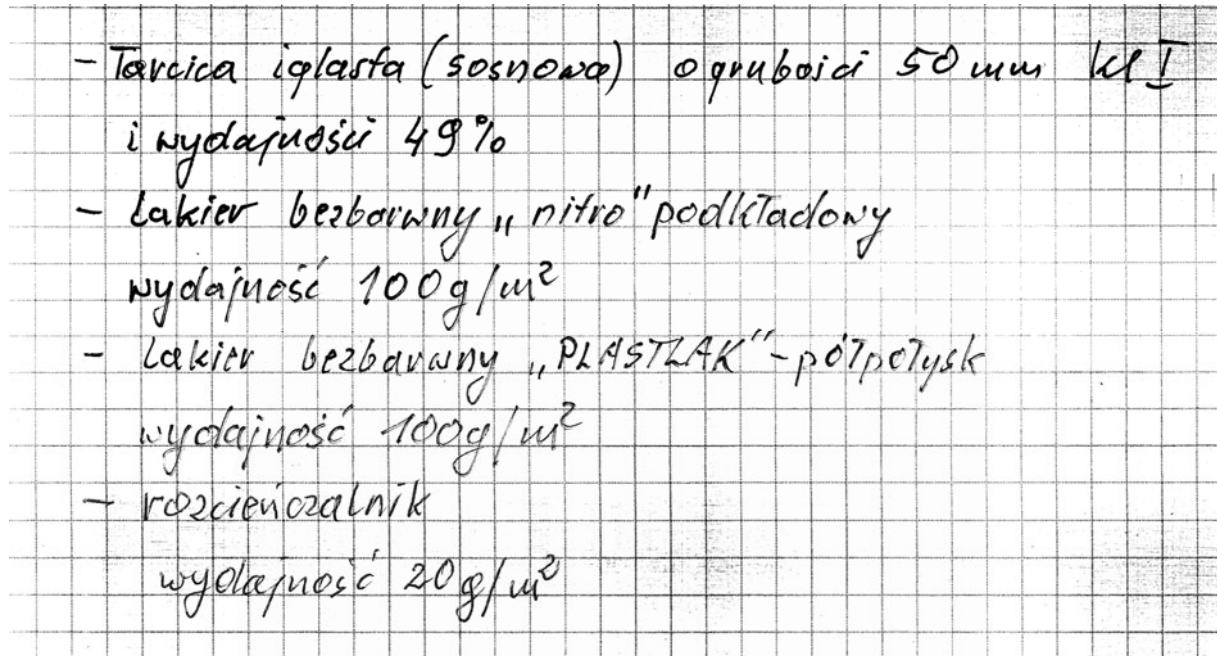 - Tarcica iglasta (sosnowa) o grubości 50 mm kl I
i wydajności 49%
- Lakier bezbarwny „nitro" podkładowy
wydajność 100g/m²
- Lakier bezbarwny „PLASTLAK" - półpołysk
wydajność 100g/m²
- rozcieńczalnik
wydajność 20g/m²